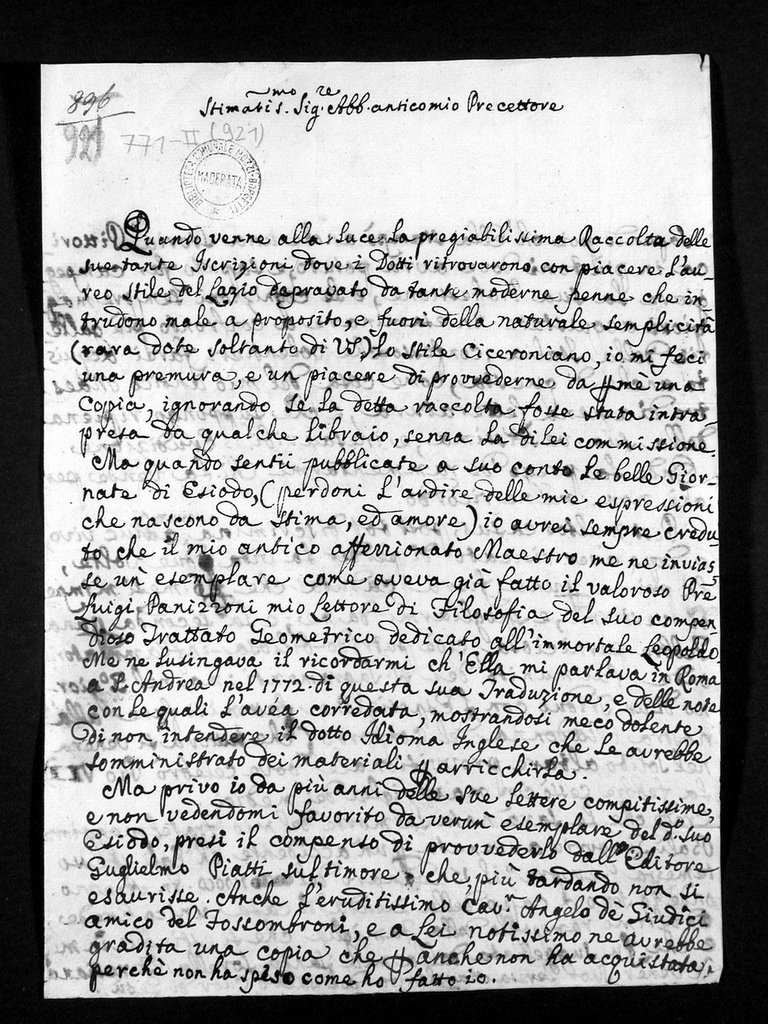 896
921
771-II (921)
Stimatis.mo Sig.re Abb. antico mio Precettore
BIBLIOTECA COMUNALE MOZZI-BORGETTI
MACERATA
Quando venne alla Luce la pregiabilissima Raccolta delle
sue tante Iscrizioni dove i Dotti ritrovarono con piacere l'au-
reo stile del Lazio depravato da tante moderne penne che in-
trudono male a proposito, e fuori della naturale semplicità
(rara dote soltanto di VS.) lo stile Ciceroniano, io mi feci
una premura, e un piacere di provvederne da p mè una
Copia, ignorando se la detta raccolta fosse stata intra-
presa da qualche libraio, senza la di lei commissione.
Ma quando sentii pubblicate a suo conto le belle Gior-
nate di Esiodo, (perdoni l'ardire delle mie espressioni
che nascono da stima, ed amore) io avrei sempre credu-
to che il mio antico affezzionato Maestro me ne invias-
se un' esemplare come aveva già fatto il valoroso Pre
Luigi Panizzoni mio Lettore di Filosofia del suo compen-
dioso Trattato Geometrico dedicato all'immortale Leopoldo.
Me ne lusingava il ricordarmi ch'Ella mi parlava in Roma
a S. Andrea nel 1772. di questa sua Traduzione, e delle note
con le quali l'avea corredata, mostrandosi meco dolente
di non intendere il dotto Idioma Inglese che le avrebbe
somministrato dei materiali p arricchirla.
Ma privo io da più anni delle sue lettere compitissime,
e non vedendomi favorito da verun' esemplare del d.o suo
Esiodo, presi il compenso di provvederlo dall' Editore
Guglielmo Piatti sul timore che, più tardando non si
esaurisse. Anche l'eruditissimo Cav.r Angelo dè Giudici
amico del Fossombroni, e a Lei notissimo ne avrebbe
gradita una copia che p anche non ha acquistata,
perchè non ha speso come ho fatto io.